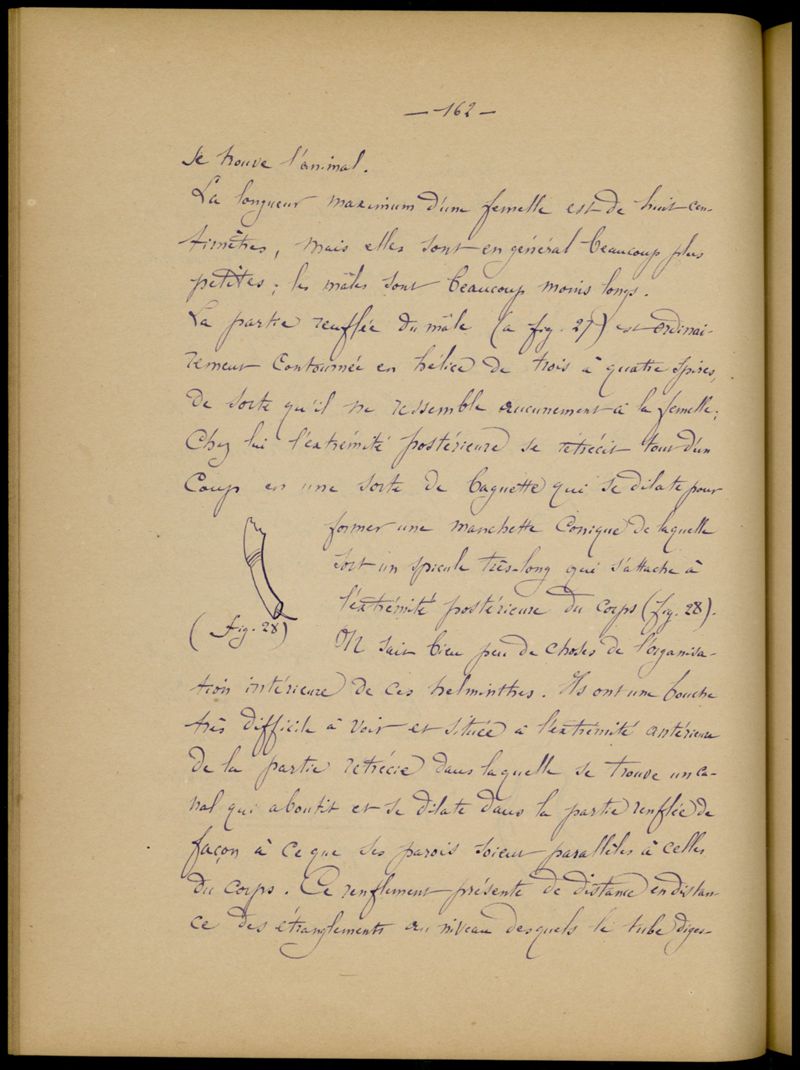 — 162 —
se trouve l'animal.
La longueur maximum d'une femelle est de huit cen-
timètres, mais elles sont en général beaucoup plus
petites ; les mâles sont beaucoup moins longs.
La partie renflée du mâle (a fig. 27) est ordinai-
rement contournée en hélice de trois à quatre spires,
de sorte qu'il ne ressemble aucunement à la femelle ;
Chez lui l'extrémité postérieure se rétrécit tout d'un
coup en une sorte de baguette qui se dilate pour
former une manchette conique de laquelle
sort un spicule très-long qui s'attache à
l'extrémité postérieure du corps (fig. 28).
(fig. 28)
On sait bien peu de choses de l'organisa-
tion intérieure de ces helminthes. Ils ont une bouche
très difficile à voir et située à l'extrémité antérieure
de la partie retrécie dans laquelle se trouve un ca-
nal qui aboutit et se dilate dans la partie renflée de
façon à ce que ses parois soient parallèles à celles
du corps. Ce renflement présente de distance en distan-
ce des étranglements au niveau desquels le tube diges-